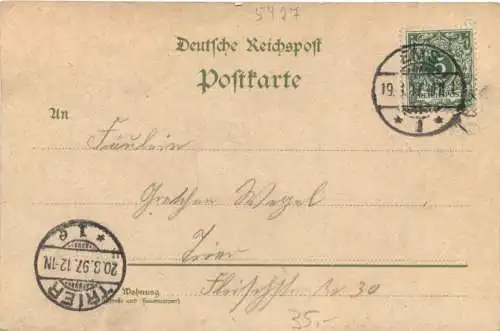 5427
Deutsche Reichspost
Postkarte
An
Fräulein
Gretchen Wegel
Trier
Wohnung
(Straße und Hausnummer)
Fleischstr. Nr 30
EMS
1
TRIER
20.8.97.12-1N.
* 1 e *
35,-